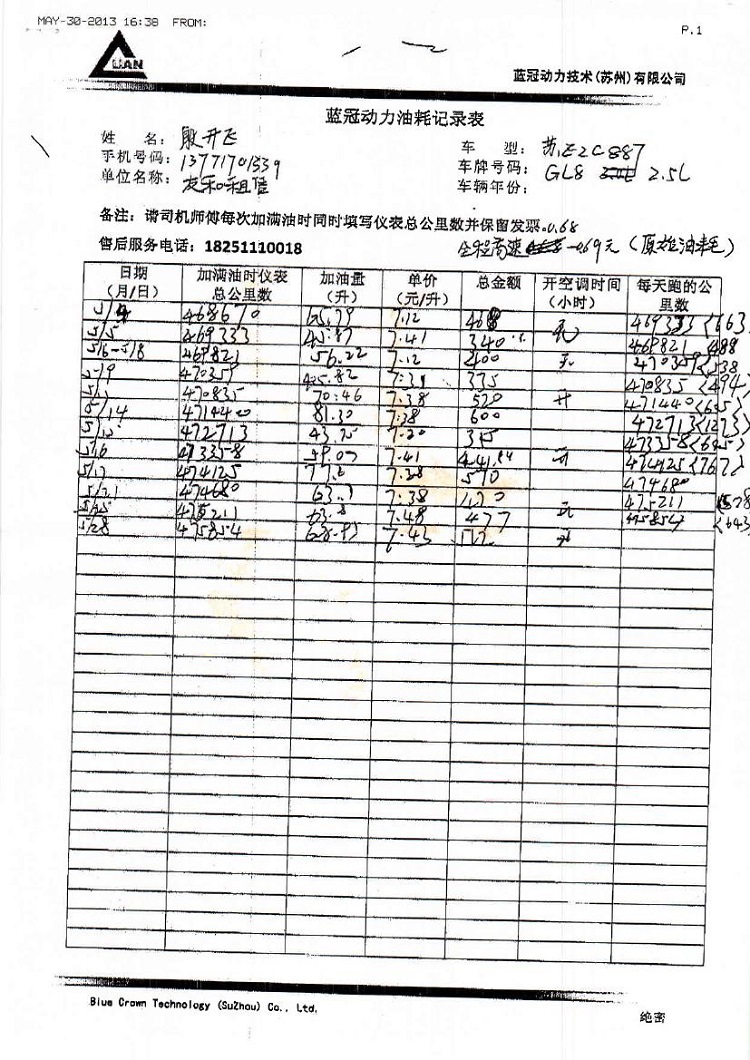 MAY-30-2013 16:38 FROM:
P.1
GUAN
蓝冠动力技术(苏州)有限公司
蓝冠动力油耗记录表
姓 名: 殷开飞
车 型: 苏EZC887
手机号码: 13771701539
车牌号码: GL8 2.5L
单位名称: 友和租赁
车辆年份:
备注: 请司机师傅每次加满油时同时填写仪表总公里数并保留发票. 0.68
售后服务电话: 18251110018
全程高速 0.69元 (原始油耗)
日期 (月/日) 加满油时仪表总公里数 加油量 (升) 单价 (元/升) 总金额 开空调时间 (小时) 每天跑的公里数
5/4 468670 65.79 7.12 468 469333 (663
5/5 469333 45.87 7.41 340 无 469821 488
5/6-5/8 469821 56.22 7.12 400 无 470359 (538
5/9 470359 45.82 7.31 335 470835 (494)
470835 70.46 7.38 520 开 471440 (605)
5/14 471440 81.30 7.38 600 472713 (1273)
5/15 472713 43.75 7.20 315 473358 (645)
5/16 473358 59.07 7.41 441.84 474125 (767)
5/17 474125 7.38 570 474680
5/21 474680 63.7 7.38 470 475211
5/25 475211 63.8 7.48 477 475854 (643)
5/28 475854 7.43
Blue Crown Technology (SuZhou) Co., Ltd.
绝密